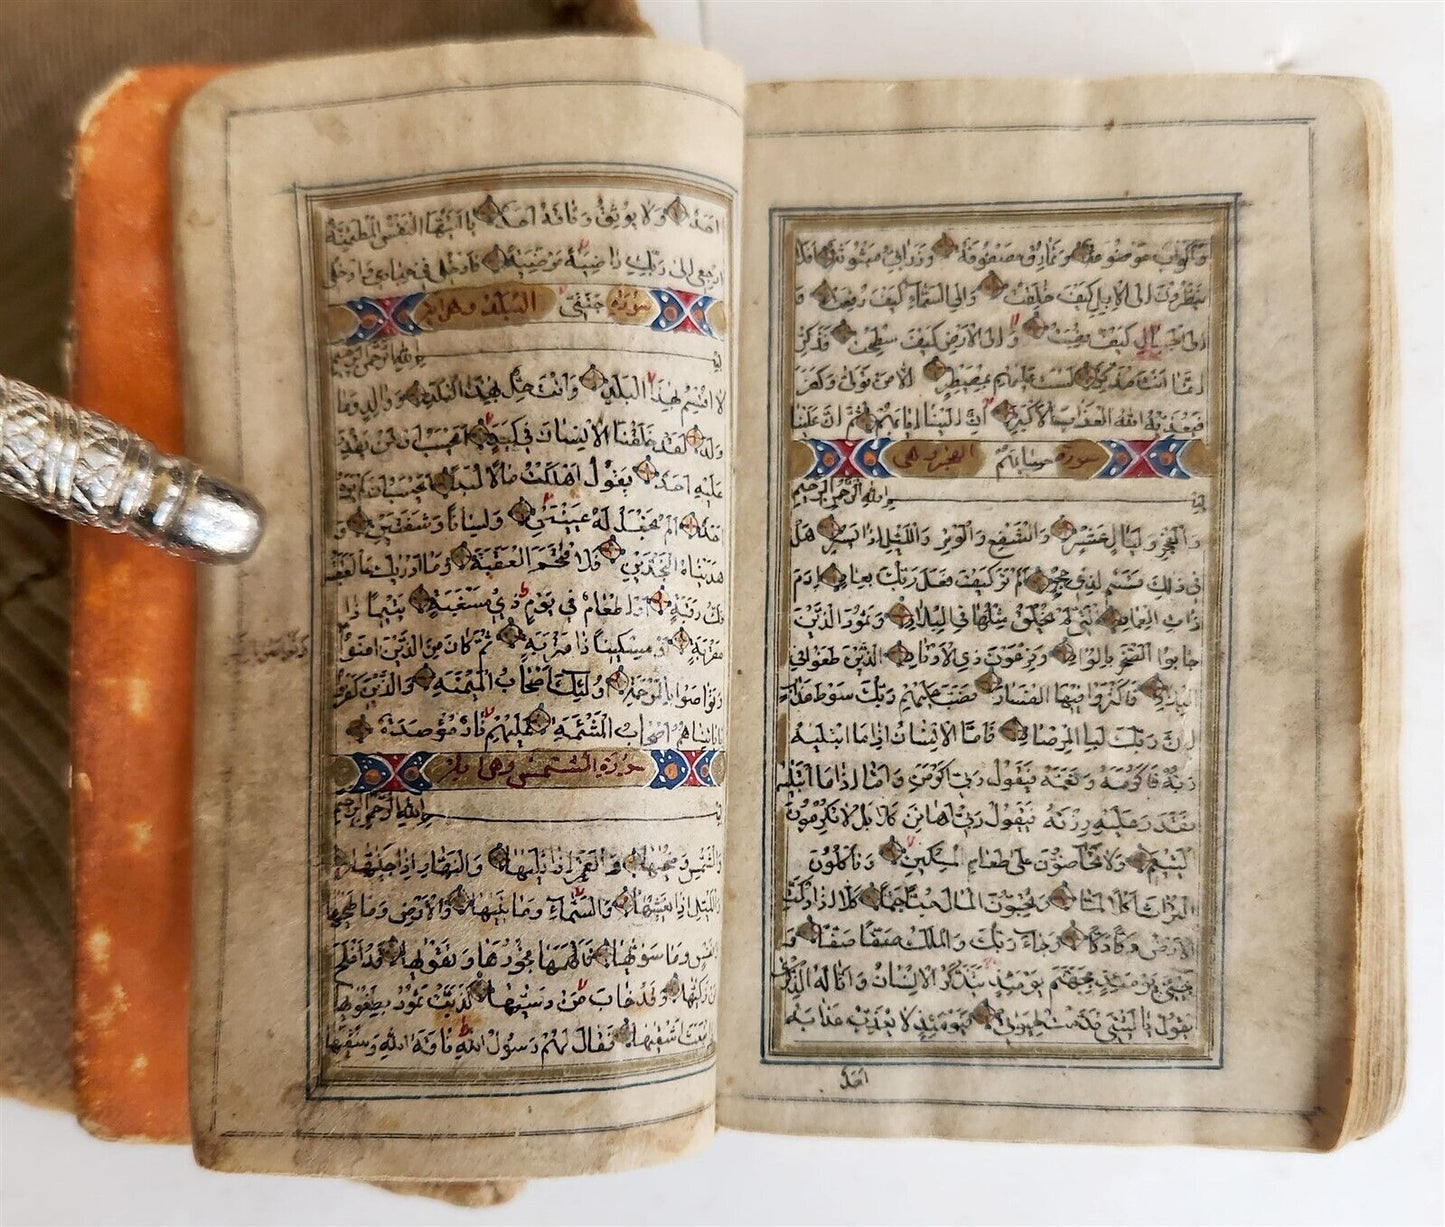 وَاَكْوَابٌ مَوْضُوعَةٌ وَنَمَارِقُ مَصْفُوفَةٌ وَزَرَابِيُّ مَبْثُوثَةٌ اَفَلَا
يَنْظُرُونَ اِلَى الْاِبِلِ كَيْفَ خُلِقَتْ وَاِلَى السَّمَاءِ كَيْفَ رُفِعَتْ وَ
اِلَى الْجِبَالِ كَيْفَ نُصِبَتْ وَاِلَى الْاَرْضِ كَيْفَ سُطِحَتْ فَذَكِّرْ
اِنَّمَا اَنْتَ مُذَكِّرٌ لَسْتَ عَلَيْهِمْ بِمُصَيْطِرٍ اِلَّا مَنْ تَوَلَّى وَكَفَرَ
فَيُعَذِّبُهُ اللهُ الْعَذَابَ الْاَكْبَرَ اِنَّ اِلَيْنَا اِيَابَهُمْ ثُمَّ اِنَّ عَلَيْنَا
سورة حِسَابَهُمْ الفجر وهى
بسم الله الرحمن الرحيم
وَالْفَجْرِ وَلَيَالٍ عَشْرٍ وَالشَّفْعِ وَالْوَتْرِ وَاللَّيْلِ اِذَا يَسْرِ هَلْ
فِى ذٰلِكَ قَسَمٌ لِذِى حِجْرٍ اَلَمْ تَرَ كَيْفَ فَعَلَ رَبُّكَ بِعَادٍ اِرَمَ
ذَاتِ الْعِمَادِ الَّتِى لَمْ يُخْلَقْ مِثْلُهَا فِى الْبِلَادِ وَثَمُودَ الَّذِينَ
جَابُوا الصَّخْرَ بِالْوَادِ وَفِرْعَوْنَ ذِى الْاَوْتَادِ الَّذِينَ طَغَوْا فِى
الْبِلَادِ فَاَكْثَرُوا فِيهَا الْفَسَادَ فَصَبَّ عَلَيْهِمْ رَبُّكَ سَوْطَ عَذَابٍ
اِنَّ رَبَّكَ لَبِالْمِرْصَادِ فَاَمَّا الْاِنْسَانُ اِذَا مَا ابْتَلٰيهُ
رَبُّهُ فَاَكْرَمَهُ وَنَعَّمَهُ فَيَقُولُ رَبِّى اَكْرَمَنِ وَاَمَّا اِذَا مَا ابْتَلٰيهُ
فَقَدَرَ عَلَيْهِ رِزْقَهُ فَيَقُولُ رَبِّى اَهَانَنِ كَلَّا بَلْ لَا تُكْرِمُونَ
الْيَتِيمَ وَلَا تَحَاضُّونَ عَلَى طَعَامِ الْمِسْكِينِ وَتَاْكُلُونَ
التُّرَاثَ اَكْلًا لَمًّا وَتُحِبُّونَ الْمَالَ حُبًّا جَمًّا كَلَّا اِذَا دُكَّتِ
الْاَرْضُ دَكًّا دَكًّا وَجَاءَ رَبُّكَ وَالْمَلَكُ صَفًّا صَفًّا وَ
جِىءَ يَوْمَئِذٍ بِجَهَنَّمَ يَوْمَئِذٍ يَتَذَكَّرُ الْاِنْسَانُ وَاَنَّى لَهُ الذِّكْرَى
يَقُولُ يَا لَيْتَنِى قَدَّمْتُ لِحَيَوتِى فَيَوْمَئِذٍ لَا يُعَذِّبُ عَذَابَهُ
احد
اَحَدٌ وَلَا يُوثِقُ وَثَاقَهُ اَحَدٌ يَا اَيَّتُهَا النَّفْسُ الْمُطْمَئِنَّةُ
ارْجِعِى اِلَى رَبِّكِ رَاضِيَةً مَرْضِيَّةً فَادْخُلِى فِى عِبَادِى وَادْخُلِى
سورة جَنَّتِى البلد وهى
بسم الله الرحمن الرحيم
لَا اُقْسِمُ بِهٰذَا الْبَلَدِ وَاَنْتَ حِلٌّ بِهٰذَا الْبَلَدِ وَوَالِدٍ وَمَا
وَلَدَ لَقَدْ خَلَقْنَا الْاِنْسَانَ فِى كَبَدٍ اَيَحْسَبُ اَنْ لَنْ يَقْدِرَ
عَلَيْهِ اَحَدٌ يَقُولُ اَهْلَكْتُ مَالًا لُبَدًا اَيَحْسَبُ اَنْ لَمْ يَرَهُ
اَحَدٌ اَلَمْ نَجْعَلْ لَهُ عَيْنَيْنِ وَلِسَانًا وَشَفَتَيْنِ وَ
هَدَيْنَاهُ النَّجْدَيْنِ فَلَا اقْتَحَمَ الْعَقَبَةَ وَمَا اَدْرٰيكَ مَا الْعَقَبَةُ
فَكُّ رَقَبَةٍ اَوْ اِطْعَامٌ فِى يَوْمٍ ذِى مَسْغَبَةٍ يَتِيمًا ذَا
مَقْرَبَةٍ اَوْ مِسْكِينًا ذَا مَتْرَبَةٍ ثُمَّ كَانَ مِنَ الَّذِينَ اٰمَنُوا
وَتَوَاصَوْا بِالْمَرْحَمَةِ اُولٰئِكَ اَصْحَابُ الْمَيْمَنَةِ وَالَّذِينَ كَفَرُوا
بِاٰيَاتِنَا هُمْ اَصْحَابُ الْمَشْئَمَةِ عَلَيْهِمْ نَارٌ مُؤْصَدَةٌ
سورة الشمس وهى
بسم الله الرحمن الرحيم
وَالشَّمْسِ وَضُحٰيهَا وَالْقَمَرِ اِذَا تَلٰيهَا وَالنَّهَارِ اِذَا جَلّٰيهَا
وَاللَّيْلِ اِذَا يَغْشٰيهَا وَالسَّمَاءِ وَمَا بَنٰيهَا وَالْاَرْضِ وَمَا طَحٰيهَا
وَنَفْسٍ وَمَا سَوّٰيهَا فَاَلْهَمَهَا فُجُورَهَا وَتَقْوٰيهَا قَدْ اَفْلَحَ
مَنْ زَكّٰيهَا وَقَدْ خَابَ مَنْ دَسّٰيهَا كَذَّبَتْ ثَمُودُ بِطَغْوٰيهَا
اِذِ انْبَعَثَ اَشْقٰيهَا فَقَالَ لَهُمْ رَسُولُ اللهِ نَاقَةَ اللهِ وَسُقْيٰهَا